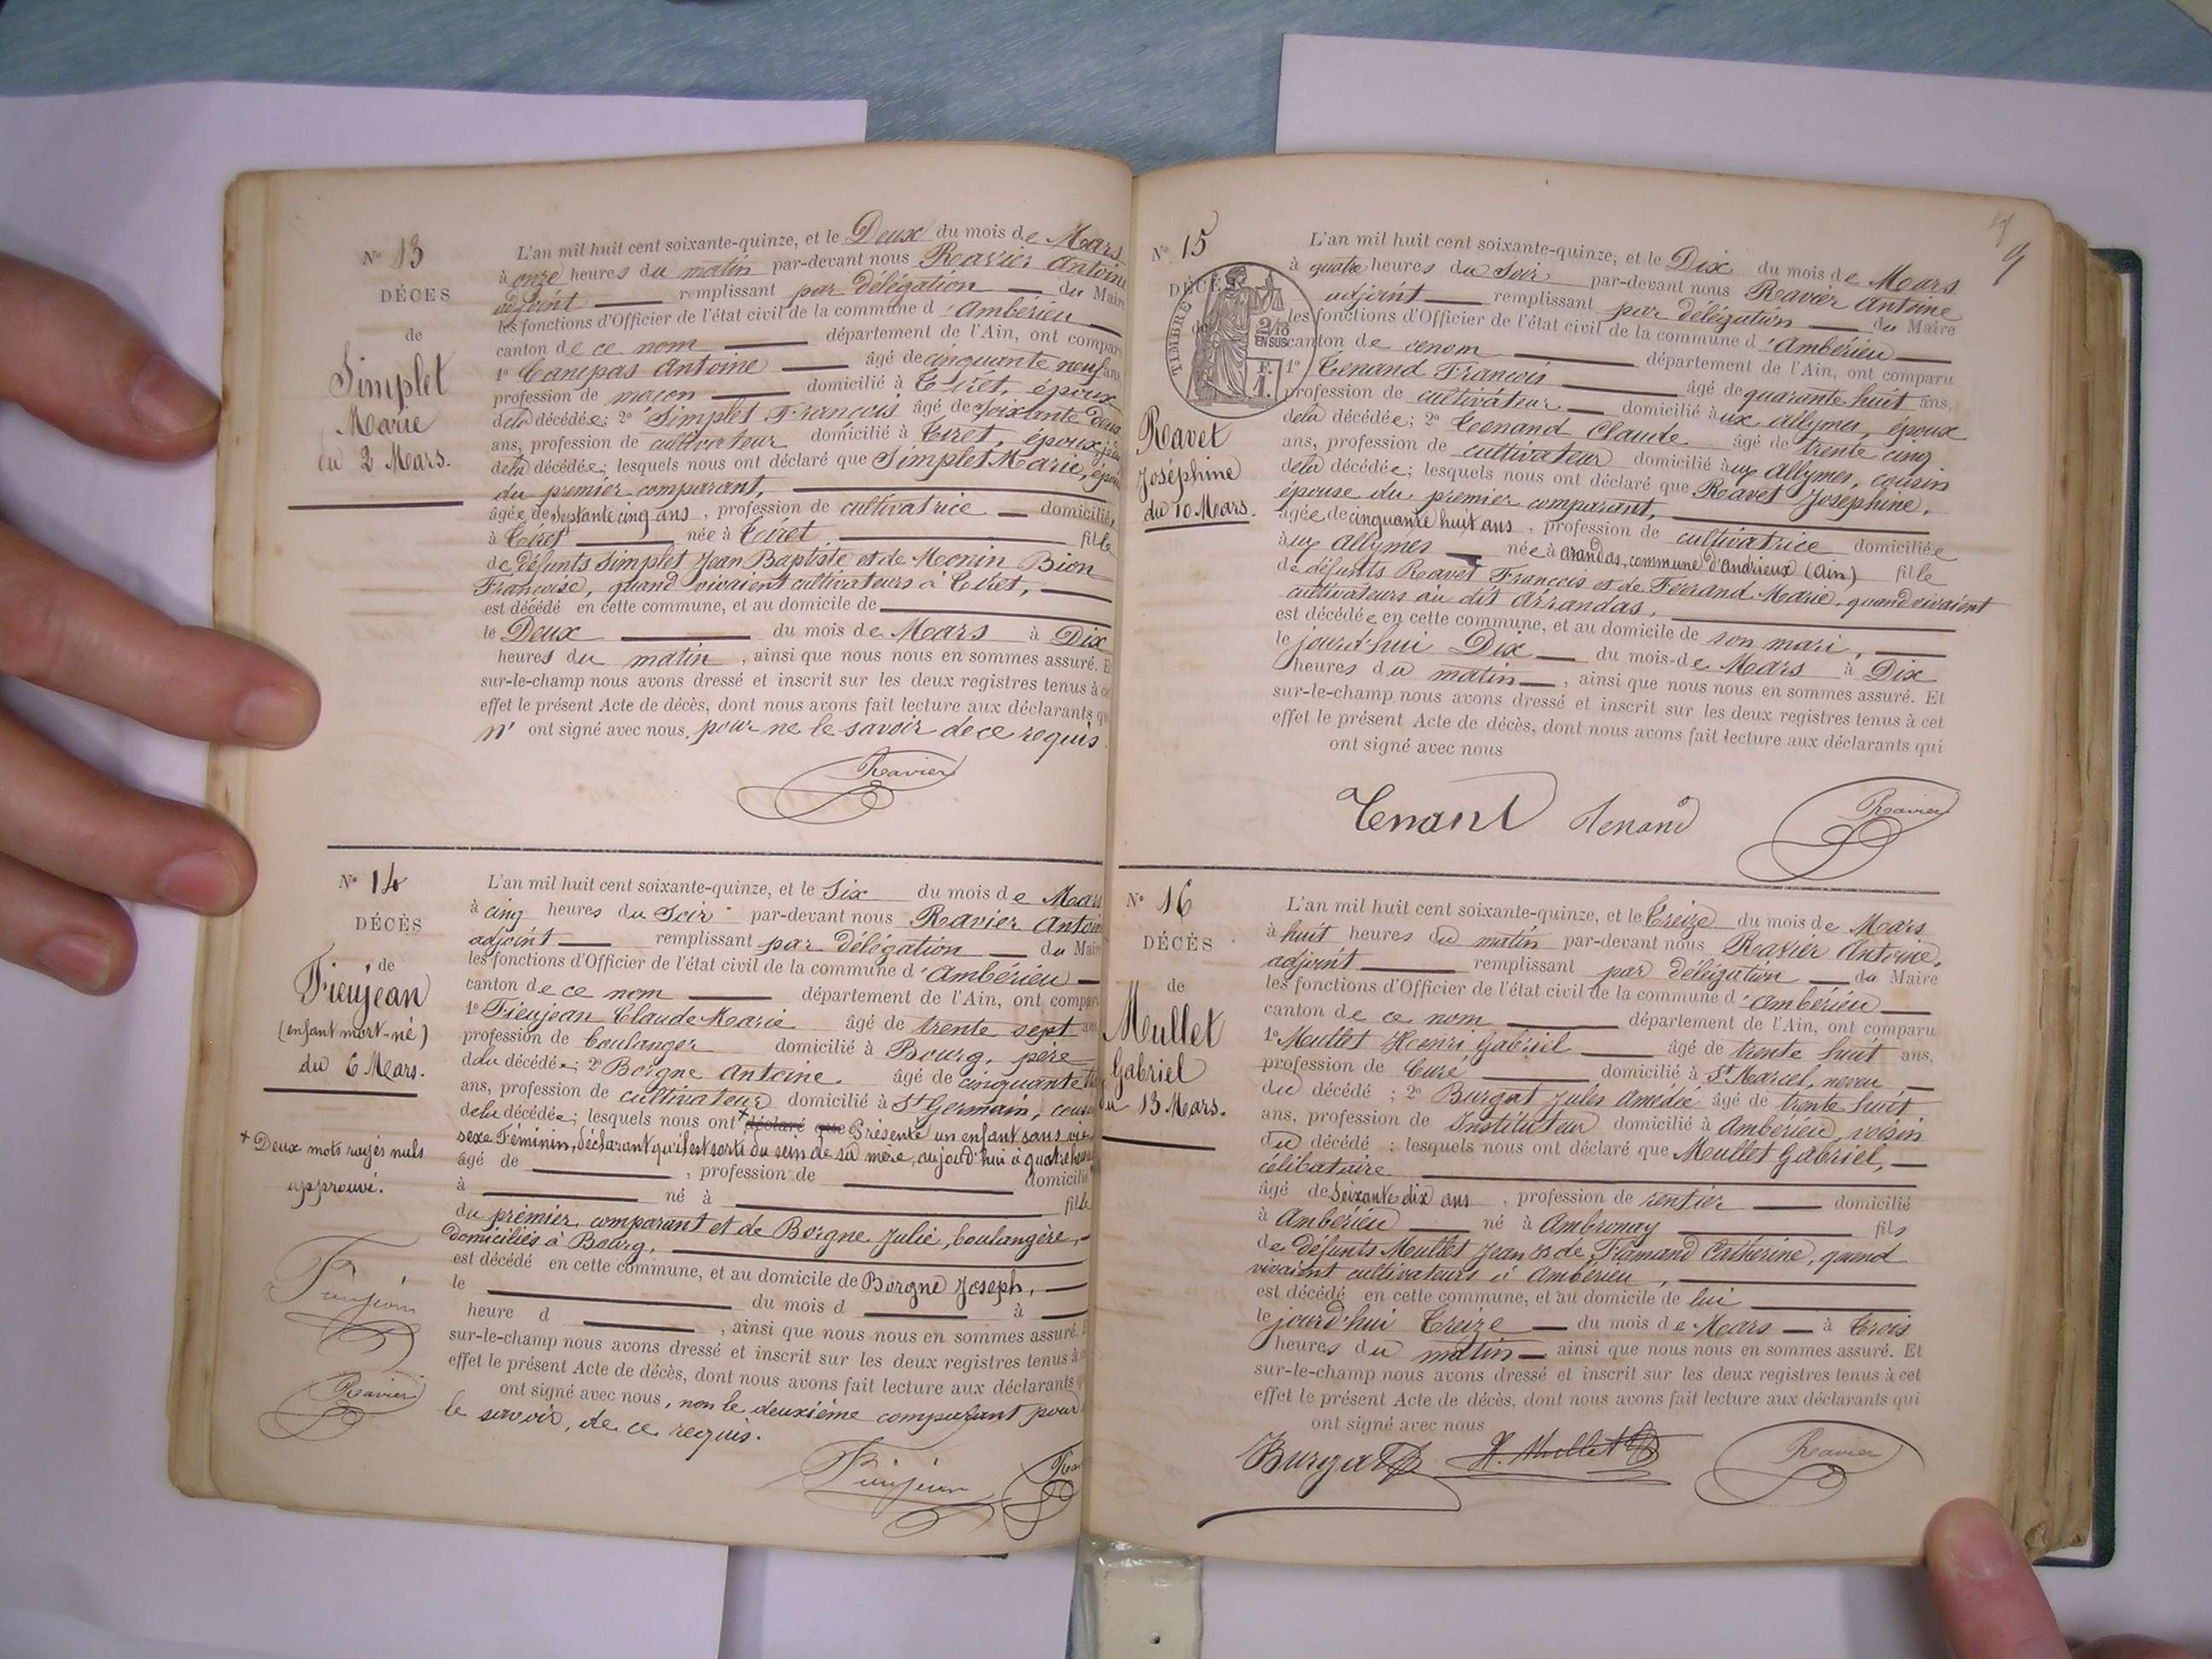 N° 13
DÉCÈS
de
Simplet
Marie
du 2 Mars.
L'an mil huit cent soixante-quinze, et le Deux du mois de Mars
à onze heures du matin par-devant nous Ravier Antoine
adjoint remplissant par délégation du Maire
les fonctions d'Officier de l'état civil de la commune d'Ambérieu
canton de ce nom département de l'Ain, ont compar
1° Campas Antoine âgé de cinquante neuf ans
profession de maçon domicilié à Tiret, époux
de la décédée; 2° Simplet François âgé de soixante deux
ans, profession de cultivateur domicilié à Tiret, époux
de la décédée; lesquels nous ont déclaré que Simplet Marie,
du premier comparant,
âgée de septante cinq ans, profession de cultivatrice domiciliée
à Tiret née à Tiret fille
de défunts Simplet Jean Baptiste et de Monin Bion
Françoise, quand vivaient cultivateurs à Tiret,
est décédé en cette commune, et au domicile de
le Deux du mois de Mars à Dix
heures du matin, ainsi que nous nous en sommes assuré. E
sur-le-champ nous avons dressé et inscrit sur les deux registres tenus à ce
effet le présent Acte de décès, dont nous avons fait lecture aux déclarants qu
n' ont signé avec nous, pour ne le savoir de ce requis
Ravier
N° 14
DÉCÈS
de
Fieujean
(enfant mort-né)
du 6 Mars.
+ Deux mots rayés nuls
approuvé.
Ravier
L'an mil huit cent soixante-quinze, et le Six du mois de Mars
à cinq heures du Soir par-devant nous Ravier Antoin
adjoint remplissant par délégation du Mair
les fonctions d'Officier de l'état civil de la commune d'Ambérieu
canton de ce nom département de l'Ain, ont compar
1° Fieujean Claude Marie âgé de trente sept ans
profession de boulanger domicilié à Bourg, père
de la décédée; 2° Borgne Antoine. âgé de cinquante
ans, profession de cultivateur domicilié à St Germain,
de la décédée; lesquels nous ont + déclaré que Présenté un enfant sans vie
sexe Féminin, déclarant qu'il est sorti du sein de sa mère, aujourd'hui à quatre heures
âgé de , profession de domicilié
à né à fille
du premier comparant et de Borgne Julie, boulangère,
domiciliés à Bourg,
est décédé en cette commune, et au domicile de Borgne Joseph,
le du mois d à
heure d , ainsi que nous nous en sommes assuré.
sur-le-champ nous avons dressé et inscrit sur les deux registres tenus à
effet le présent Acte de décès, dont nous avons fait lecture aux déclarants
ont signé avec nous, non le deuxième comparant pour
le savoir, de ce requis.
N° 15
DÉCÈS
de
TIMBRE
2/10
EN SUS
F.
1.
Ravet
Joséphine
du 10 Mars.
9
L'an mil huit cent soixante-quinze, et le Dix du mois de Mars
à quatre heures du Soir par-devant nous Ravier Antoine
adjoint remplissant par délégation du Maire
les fonctions d'Officier de l'état civil de la commune d'Ambérieu
canton de ce nom département de l'Ain, ont comparu
1° Tenand François âgé de quarante huit ans,
profession de cultivateur domicilié aux Allymes, époux
de la décédée; 2° Tenand Claude âgé de trente cinq
ans, profession de cultivateur domicilié aux Allymes, cousin
de la décédée; lesquels nous ont déclaré que Ravet Joséphine,
épouse du premier comparant,
âgée de cinquante huit ans, profession de cultivatrice domiciliée
aux Allymes née à arandas, commune d'andrieux (Ain) fille
de défunts Ravet François et de Férrand Marie, quand vivaient
cultivateurs au dit Arrandas,
est décédée en cette commune, et au domicile de son mari,
le jourd'hui Dix du mois de Mars à Dix
heures du matin, ainsi que nous nous en sommes assuré. Et
sur-le-champ nous avons dressé et inscrit sur les deux registres tenus à cet
effet le présent Acte de décès, dont nous avons fait lecture aux déclarants qui
ont signé avec nous
Tenant Tenand Ravier
N° 16
DÉCÈS
de
Mullet
Gabriel
du 13 Mars.
L'an mil huit cent soixante-quinze, et le Treize du mois de Mars
à huit heures du matin par-devant nous Ravier Antoine,
adjoint remplissant par délégation du Maire
les fonctions d'Officier de l'état civil de la commune d'Ambérieu
canton de ce nom département de l'Ain, ont comparu
1° Mullet Henri Gabriel âgé de trente huit ans,
profession de Curé domicilié à St Marcel, neveu
du décédé; 2° Burgat Jules Amédée âgé de trente huit
ans, profession de Instituteur domicilié à Ambérieu, voisin
du décédé; lesquels nous ont déclaré que Mullet Gabriel,
célibataire
âgé de soixante dix ans, profession de rentier domicilié
à Ambérieu né à Ambronay fils
de défunts Mullet Jean et de Flamand Catherine, quand
vivaient cultivateurs à Ambérieu,
est décédé en cette commune, et au domicile de lui
le jourd'hui Treize du mois de Mars à Trois
heures du matin ainsi que nous nous en sommes assuré. Et
sur-le-champ nous avons dressé et inscrit sur les deux registres tenus à cet
effet le présent Acte de décès, dont nous avons fait lecture aux déclarants qui
ont signé avec nous
Burgat H. Mullet Ravier